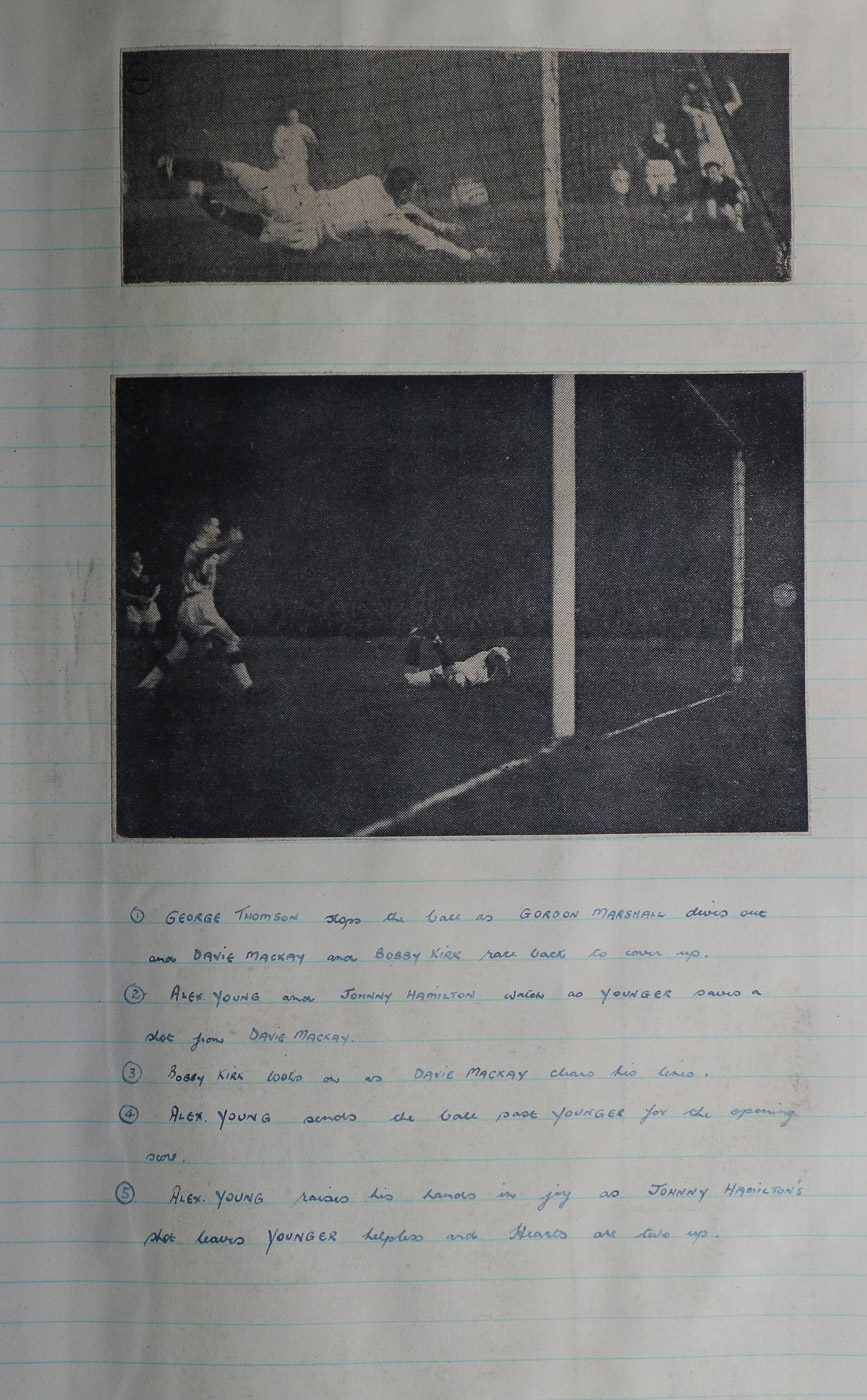 ① GEORGE THOMSON stops the ball as GORDON MARSHALL dives out
and DAVIE MACKAY and BOBBY KIRK race back to cover up.
② ALEX. YOUNG and JOHNNY HAMILTON watch as YOUNGER saves a
shot from DAVIE MACKAY.
③ BOBBY KIRK looks on as DAVIE MACKAY clears his lines.
④ ALEX. YOUNG sends the ball past YOUNGER for the opening
score.
⑤ ALEX. YOUNG raises his hands in joy as JOHNNY HAMILTON'S
shot leaves YOUNGER helpless and Hearts are two up.